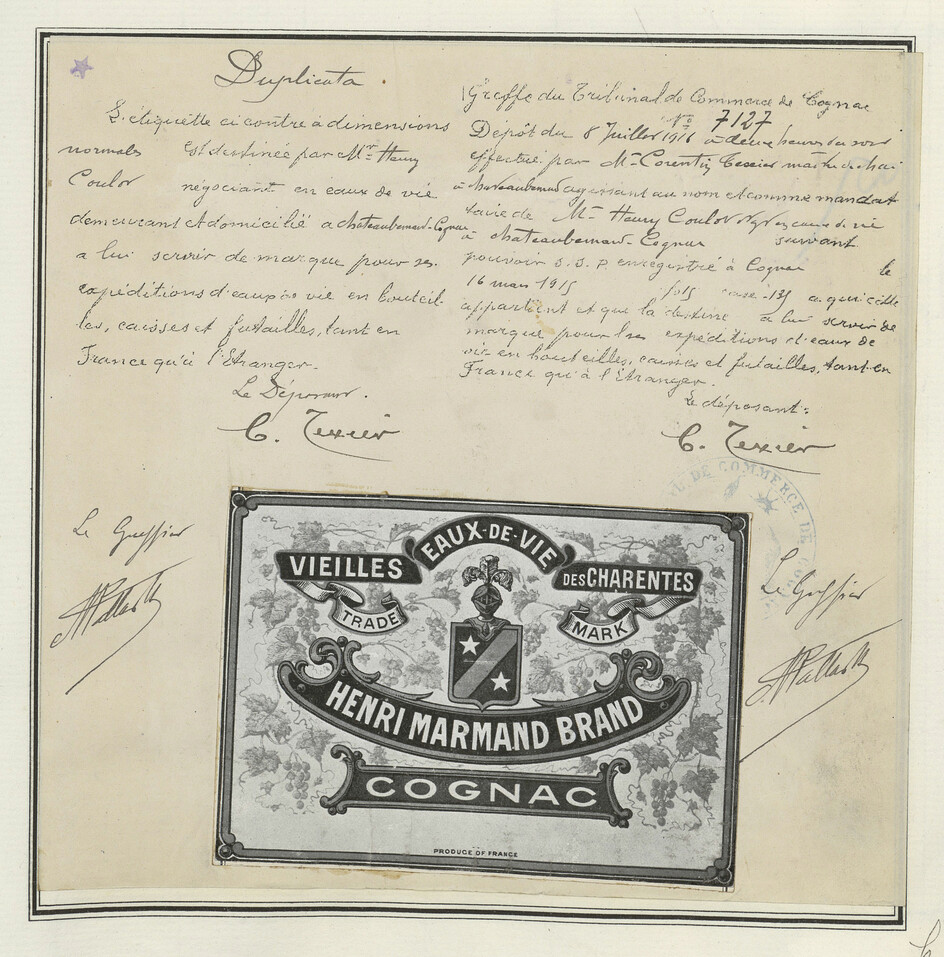 Duplicata
L'étiquette ci contre à dimensions
normales est destinée par Mr Henry
Coulon négociant en eaux de vie
demeurant et domicilié a chateaubernard-Cognac
a lui servir de marque pour ses
expéditions d'eaux de vie en bouteil-
les, caisses et futailles, tant en
France qu'à l'Etranger.
Le Déposant.
C. Texier
Greffe du Tribunal de Commerce de Cognac
No 7127
Dépôt du 8 Juillet à deux heures du soir
effectué par Mr Corentin Texier maitre de chai
à chateaubernard agissant au nom et comme mandat
taire de Mr Henry Coulon eaux de vie
à chateaubernard-Cognac suivant
pouvoir S.S.P. enregistré à Cognac le
16 mars 1915 case a qui elle
appartient et que la destine a lui servir de
marque pour les expéditions d'eaux de
vie en bouteilles, caisses et futailles, tant en
France qu'à l'étranger.
Le déposant:
C. Texier
DE COMMERCE DE
Le Greffier
Le Greffier
VIEILLES EAUX-DE-VIE DES CHARENTES
TRADE MARK
HENRI MARMAND BRAND
COGNAC
PRODUCE OF FRANCE